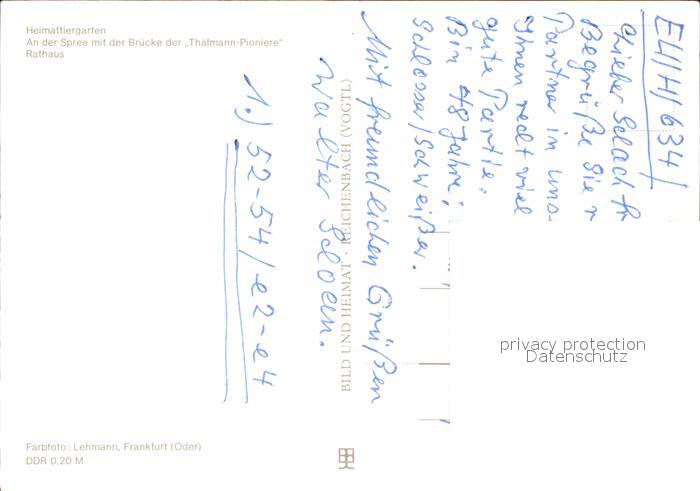 Heimattiergarten
An der Spree mit der Brücke der „Thälmann-Pioniere“
Rathaus
EU/H/634/
Lieber Schach fr
Begrüße Sie
Partner in uns-
Ihnen recht viel
gute Partie.
Bin 48 Jahre;
Schlosser/Schweißer.
Mit freundlichen Grüßen
Walter
1.) 52-54/e2-e4
BILD UND HEIMAT · REICHENBACH (VOGTL)
privacy protection
Datenschutz
Farbfoto: Lehmann, Frankfurt (Oder)
DDR 0,20 M